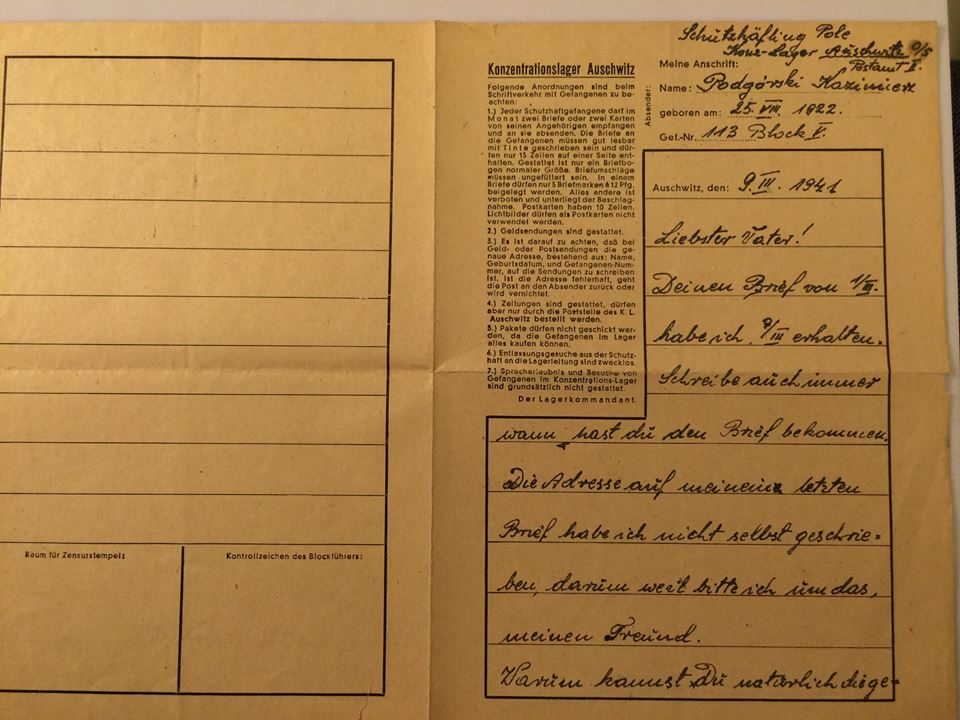 Raum für Zensurstempel:
Kontrollzeichen des Blockführers:
Konzentrationslager Auschwitz
Folgende Anordnungen sind beim
Schriftverkehr mit Gefangenen zu be-
achten:
1.) Jeder Schutzhaftgefangene darf im
Monat zwei Briefe oder zwei Karten
von seinen Angehörigen empfangen
und an sie absenden. Die Briefe an
die Gefangenen müssen gut lesbar
mit Tinte geschrieben sein und dür-
fen nur 15 Zeilen auf einer Seite ent-
halten. Gestattet ist nur ein Briefbo-
gen normaler Größe. Briefumschläge
müssen ungefüttert sein. In einem
Briefe dürfen nur 5 Briefmarken à 12 Pfg.
beigelegt werden. Alles andere ist
verboten und unterliegt der Beschlag-
nahme. Postkarten haben 10 Zeilen.
Lichtbilder dürfen als Postkarten nicht
verwendet werden.
2.) Geldsendungen sind gestattet.
3.) Es ist darauf zu achten, daß bei
Geld- oder Postsendungen die ge-
naue Adresse, bestehend aus: Name,
Geburtsdatum, und Gefangenen-Num-
mer, auf die Sendungen zu schreiben
ist. Ist die Adresse fehlerhaft, geht
die Post an den Absender zurück oder
wird vernichtet.
4.) Zeitungen sind gestattet, dürfen
aber nur durch die Poststelle des K. L.
Auschwitz bestellt werden.
5.) Pakete dürfen nicht geschickt wer-
den, da die Gefangenen im Lager
alles kaufen können.
6.) Entlassungsgesuche aus der Schutz-
haft an die Lagerleitung sind zwecklos.
7.) Sprecherlaubnis und Besuche von
Gefangenen im Konzentrations-Lager
sind grundsätzlich nicht gestattet.
Der Lagerkommandant.
Absender:
Schutzhäfling Pole
Konz-Lager Auschwitz O/S
Postamt II.
Meine Anschrift:
Name: Podgórski Kazimierz
geboren am: 25. VIII. 1922.
Gef.-Nr. 113 Block V.
Auschwitz, den: 9. III. 1941
Liebster Vater!
Deinen Brief von 1/III.
habe ich 7/III erhalten.
Schreibe auch immer
wann hast du den Brief bekommen.
Die Adresse auf meinem letzten
Brief habe ich nicht selbst geschrie=
ben, darum bitte ich um das,
meinen Freund.
Warum kannst Du natürlich